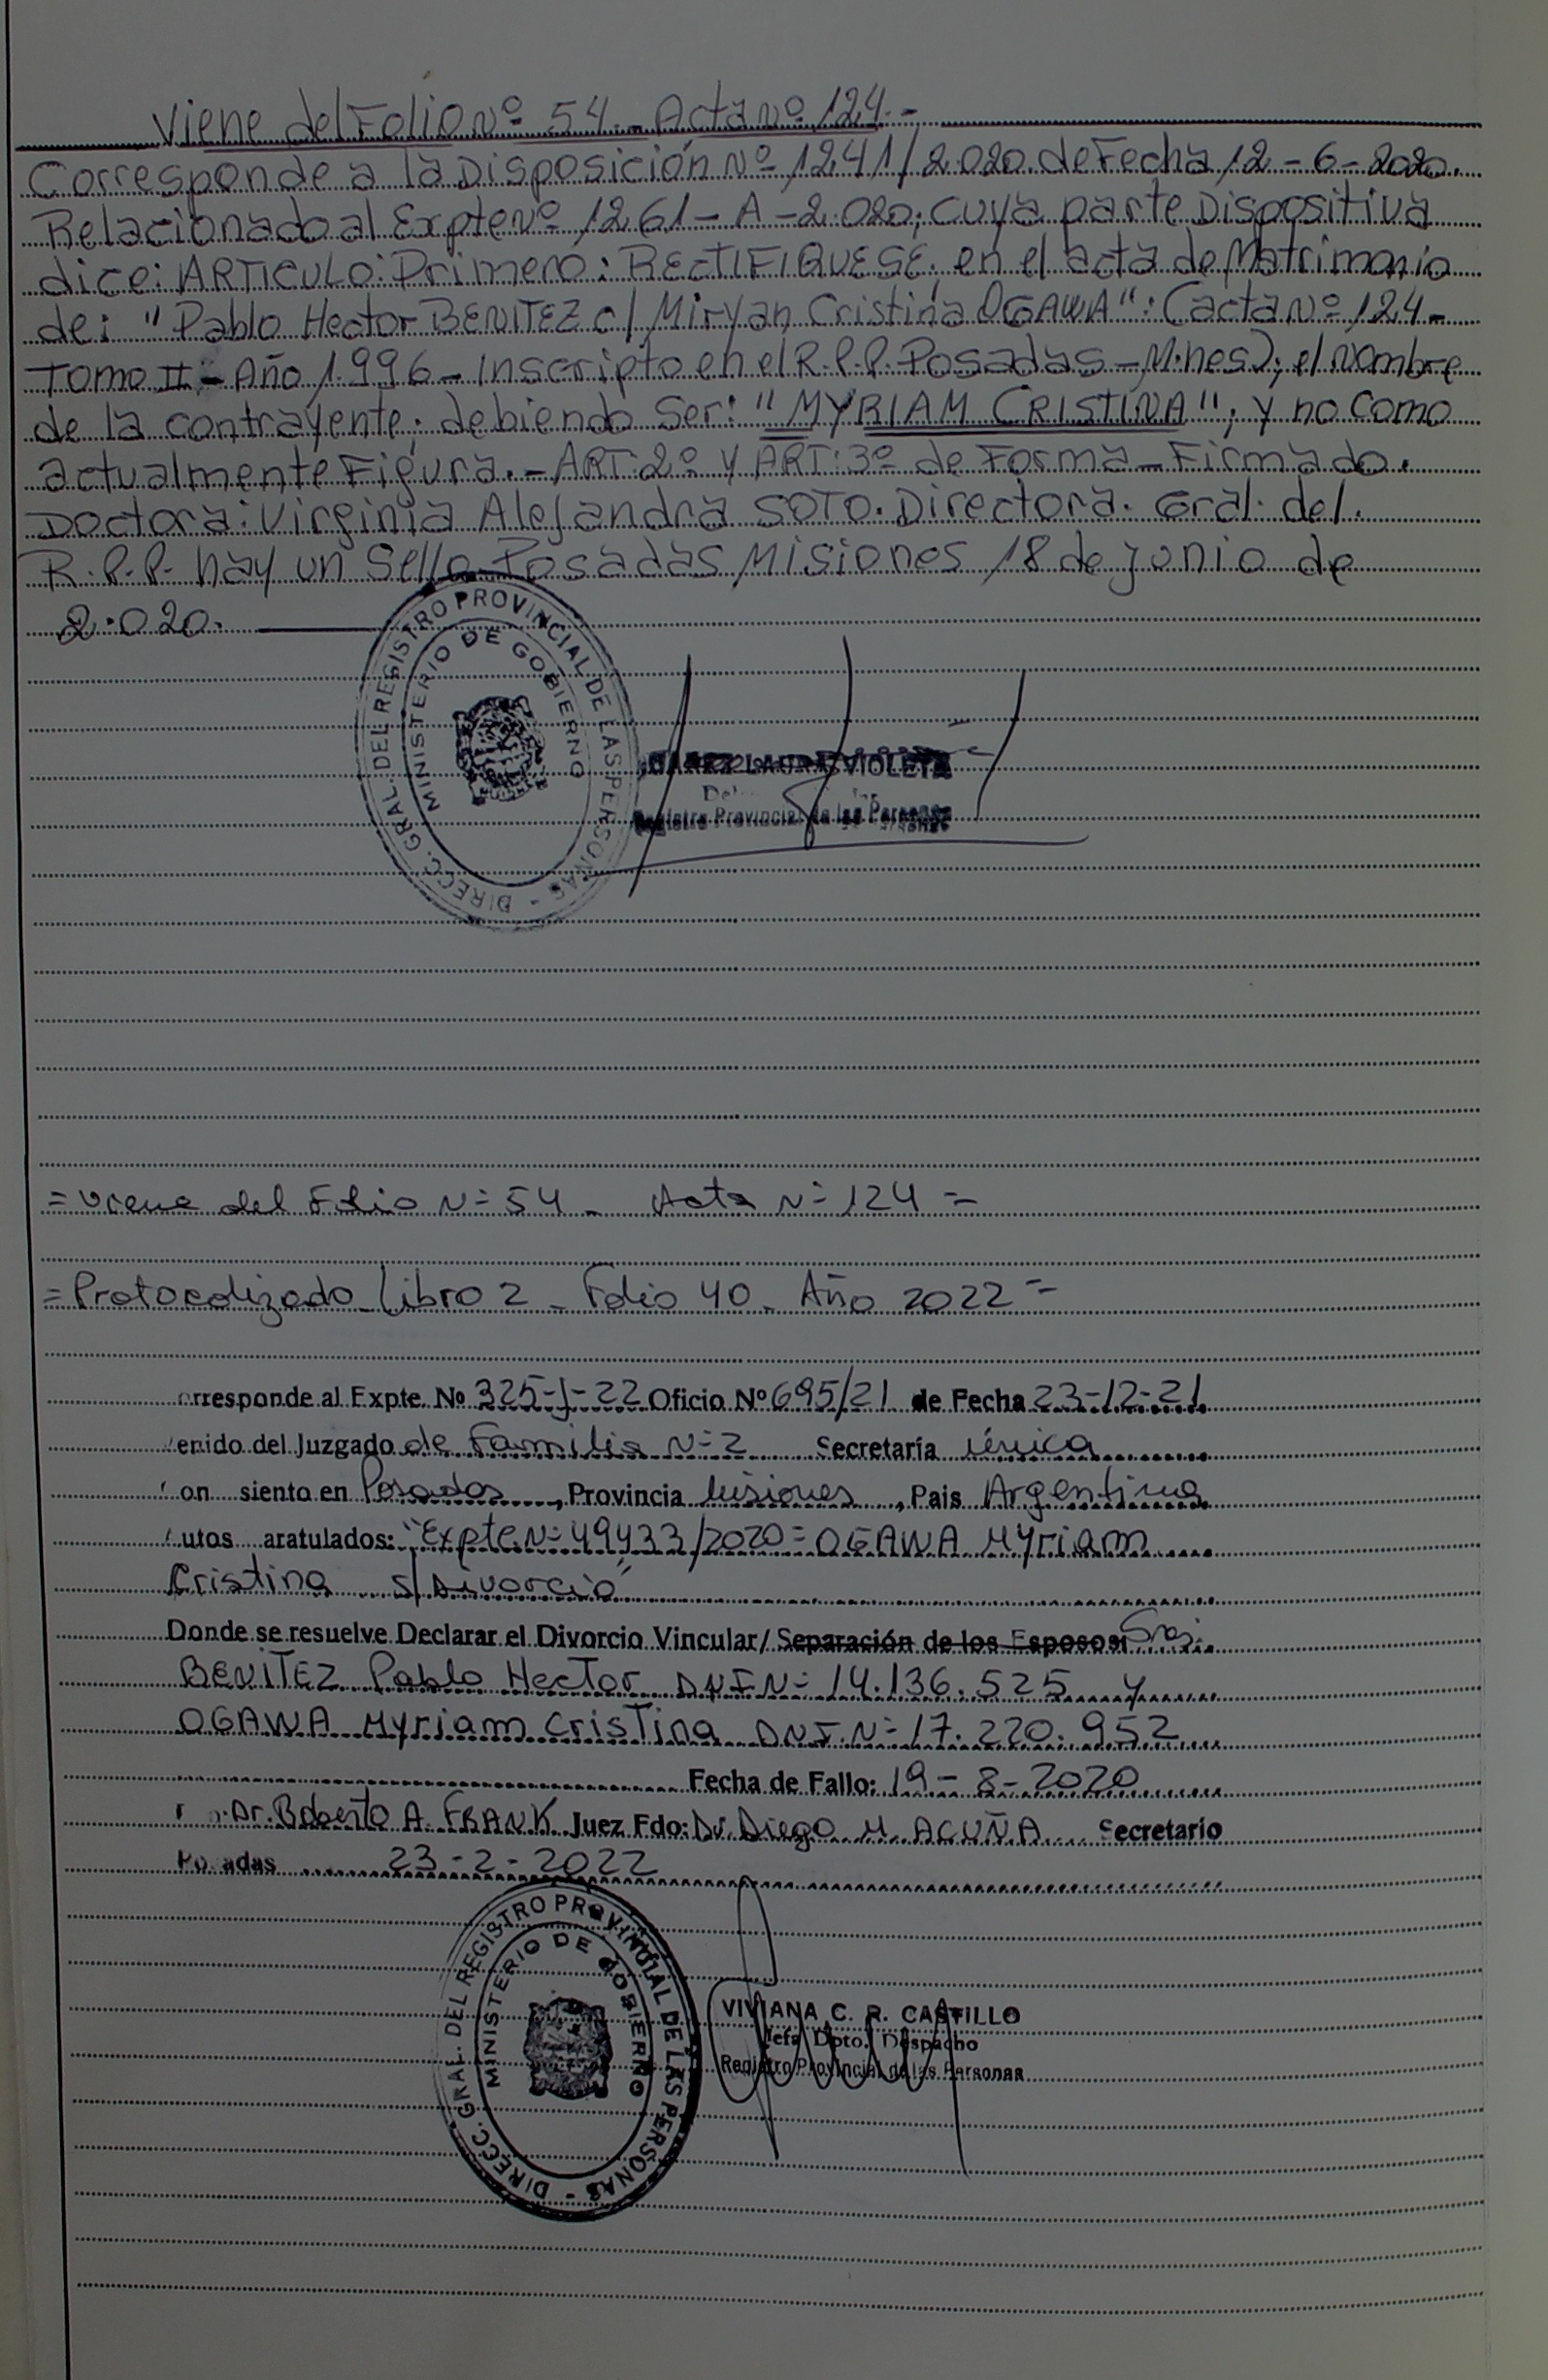 Viene del Folio Nº 54 - Acta Nº 124.-
Corresponde a la Disposición Nº 1241/2.020. de Fecha 12-6-2020.
Relacionado al Expte Nº 1261-A-2.020; cuya parte Dispositiva
dice: ARTICULO: Primero: RECTIFIQUESE. en el acta de Matrimonio
de: "Pablo Hector BENITEZ c/ Miryan Cristina OGAWA": (acta Nº 124-
Tomo II - Año 1.996 - Inscripto en el R.P.P. Posadas - M.nes); el Nombre
de la contrayente; debiendo Ser: "MYRIAM CRISTINA"; y no Como
actualmente Figura. - ART: 2º Y ART: 3º de Forma - Firmado.
Doctora: Virginia Alejandra SOTO. Directora. Gral. del.
R.P.P. hay un Sello Posadas Misiones 18 de Junio de
2.020.
DIRECC. GRAL. DEL REGISTRO PROVINCIAL DE LAS PERSONAS -
MINISTERIO DE GOBIERNO
LAURA VIOLETA
Registro Provincial de las Personas
= Viene del Folio Nº 54 - Acta Nº 124 =
= Protocolizado Libro 2 - Folio 40 - Año 2022 =
orresponde al Expte. Nº 325-J-22 Oficio Nº 695/21 de Fecha 23-12-21
enido del Juzgado de Familia Nº 2 Secretaría única
on siento en Posadas, Provincia Misiones, Pais Argentina
utos aratulados: "Expte. Nº 49433/2020 = OGAWA Myriam
Cristina s/ Divorcio"
Donde se resuelve Declarar el Divorcio Vincular/ Separación de los Esposos: Sres.
BENITEZ Pablo Hector DNI Nº 14.136.525 y
OGAWA Myriam Cristina DNI. Nº 17.220.952
Fecha de Fallo: 19-8-2020
Dr. Roberto A. FRANK Juez Fdo: Dr. Diego M. ACUÑA Secretario
Posadas 23-2-2022
DIRECC. GRAL. DEL REGISTRO PROVINCIAL DE LAS PERSONAS -
MINISTERIO DE GOBIERNO
VIVIANA C. R. CASTILLO
Jefa Dpto. Despacho
Registro Provincial de las Personas